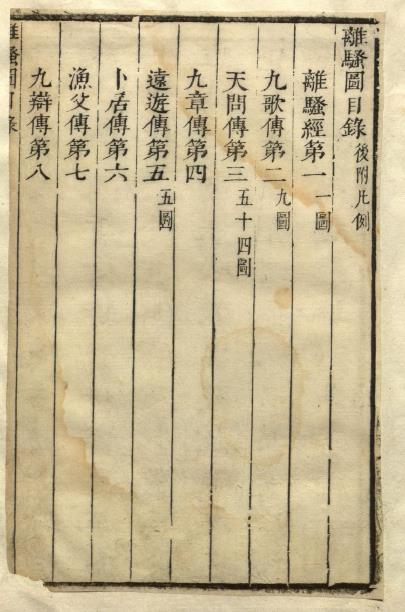 離騷圖目錄後附凡例
離騷經第一一圖
九歌傳第二九圖
天問傳第三五十四圖
九章傳第四
遠遊傳第五五圖
卜居傳第六
漁父傳第七
九辯傳第八
離騷圖目錄